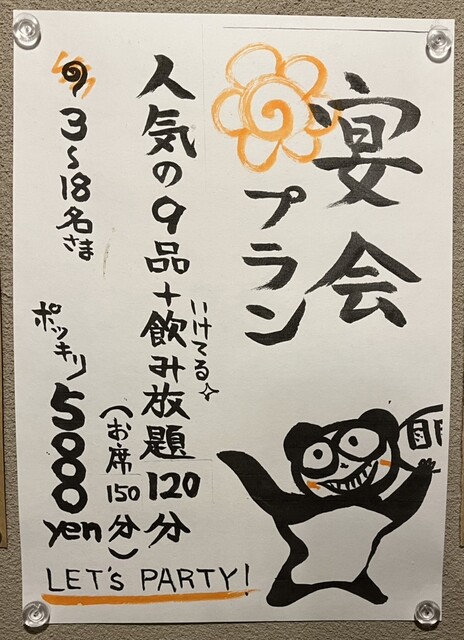 宴会
プラン
人気の9品+飲み放題120分
いけてる
(お席150分)
3~18名さま
ポッキリ5000yen
LET'S PARTY!